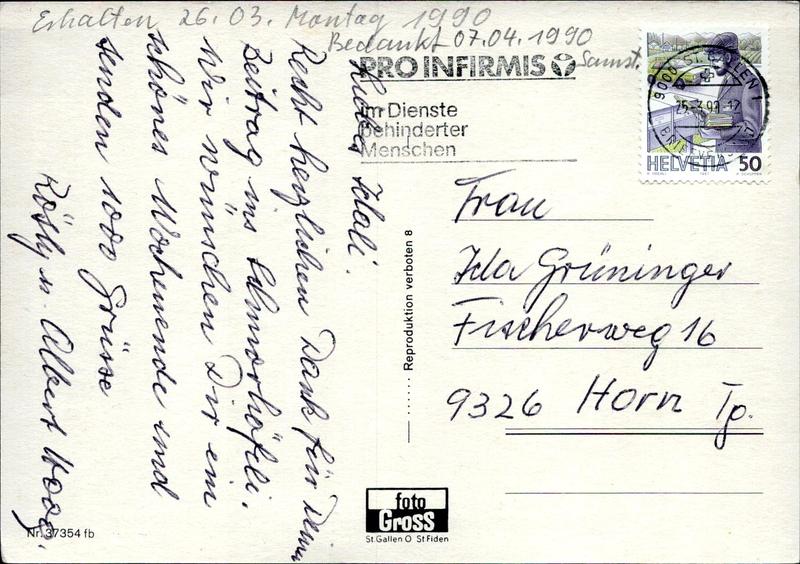 Erhalten 26.03. Montag 1990
Bedankt 07.04.1990
Samst.
PRO INFIRMIS
im Dienste
behinderter
Menschen
9000 ST. GALLEN 1
25-3.90-17
HELVETIA 50
Liebes Idali.
Recht herzlichen Dank für Deinen
Beitrag ins
Wir wünschen Dir ein
schönes Wochenende und
senden 1000 Grüsse
Rösly u. Albert
Frau
Ida Grüninger
Fischerweg 16
9326 Horn Tg.
Reproduktion verboten 8
foto
Gross
St.Gallen O St Fiden
Nr. 37354 fb